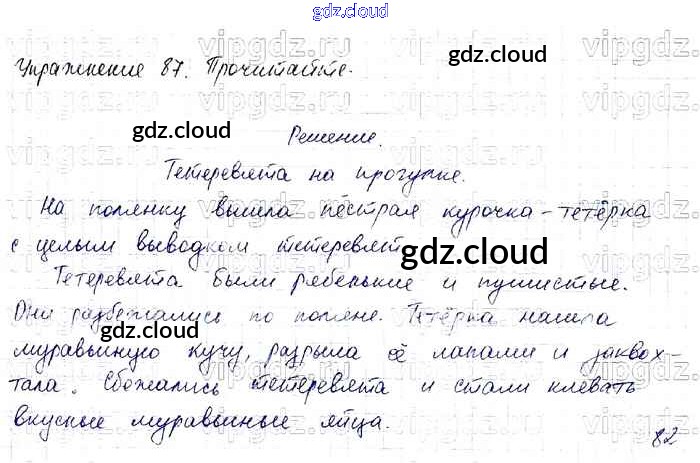 gdz.cloud
Упражнение 87. Прочитайте.
gdz.cloud
gdz.cloud
Решение.
Тетеревята на прогулке.
На полянку вышла пёстрая курочка-тетёрка
с целым выводком тетеревят
gdz.cloud
Тетеревята были рябенькие и пушистые.
Они разбежались по поляне. Тетёрка нашла
gdz.cloud
муравьиную кучу, разрыла её лапами и заквох-
тала. Сбежались тетеревята и стали клевать
gdz.cloud
вкусные муравьиные яйца.
82
vipgdz.ru